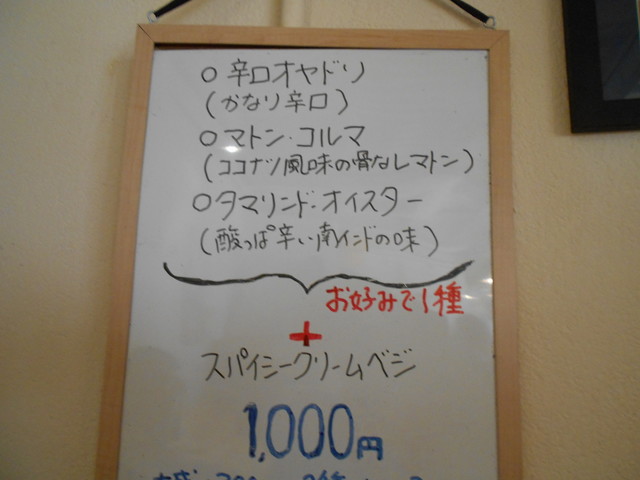 ○ 辛口オヤドリ
(かなり辛口)
○ マトン・コルマ
(ココナツ風味の骨なしマトン)
○ タマリンド・オイスター
(酸っぱ辛い南インドの味)
お好みで1種
+
スパイシークリームベジ
1,000円